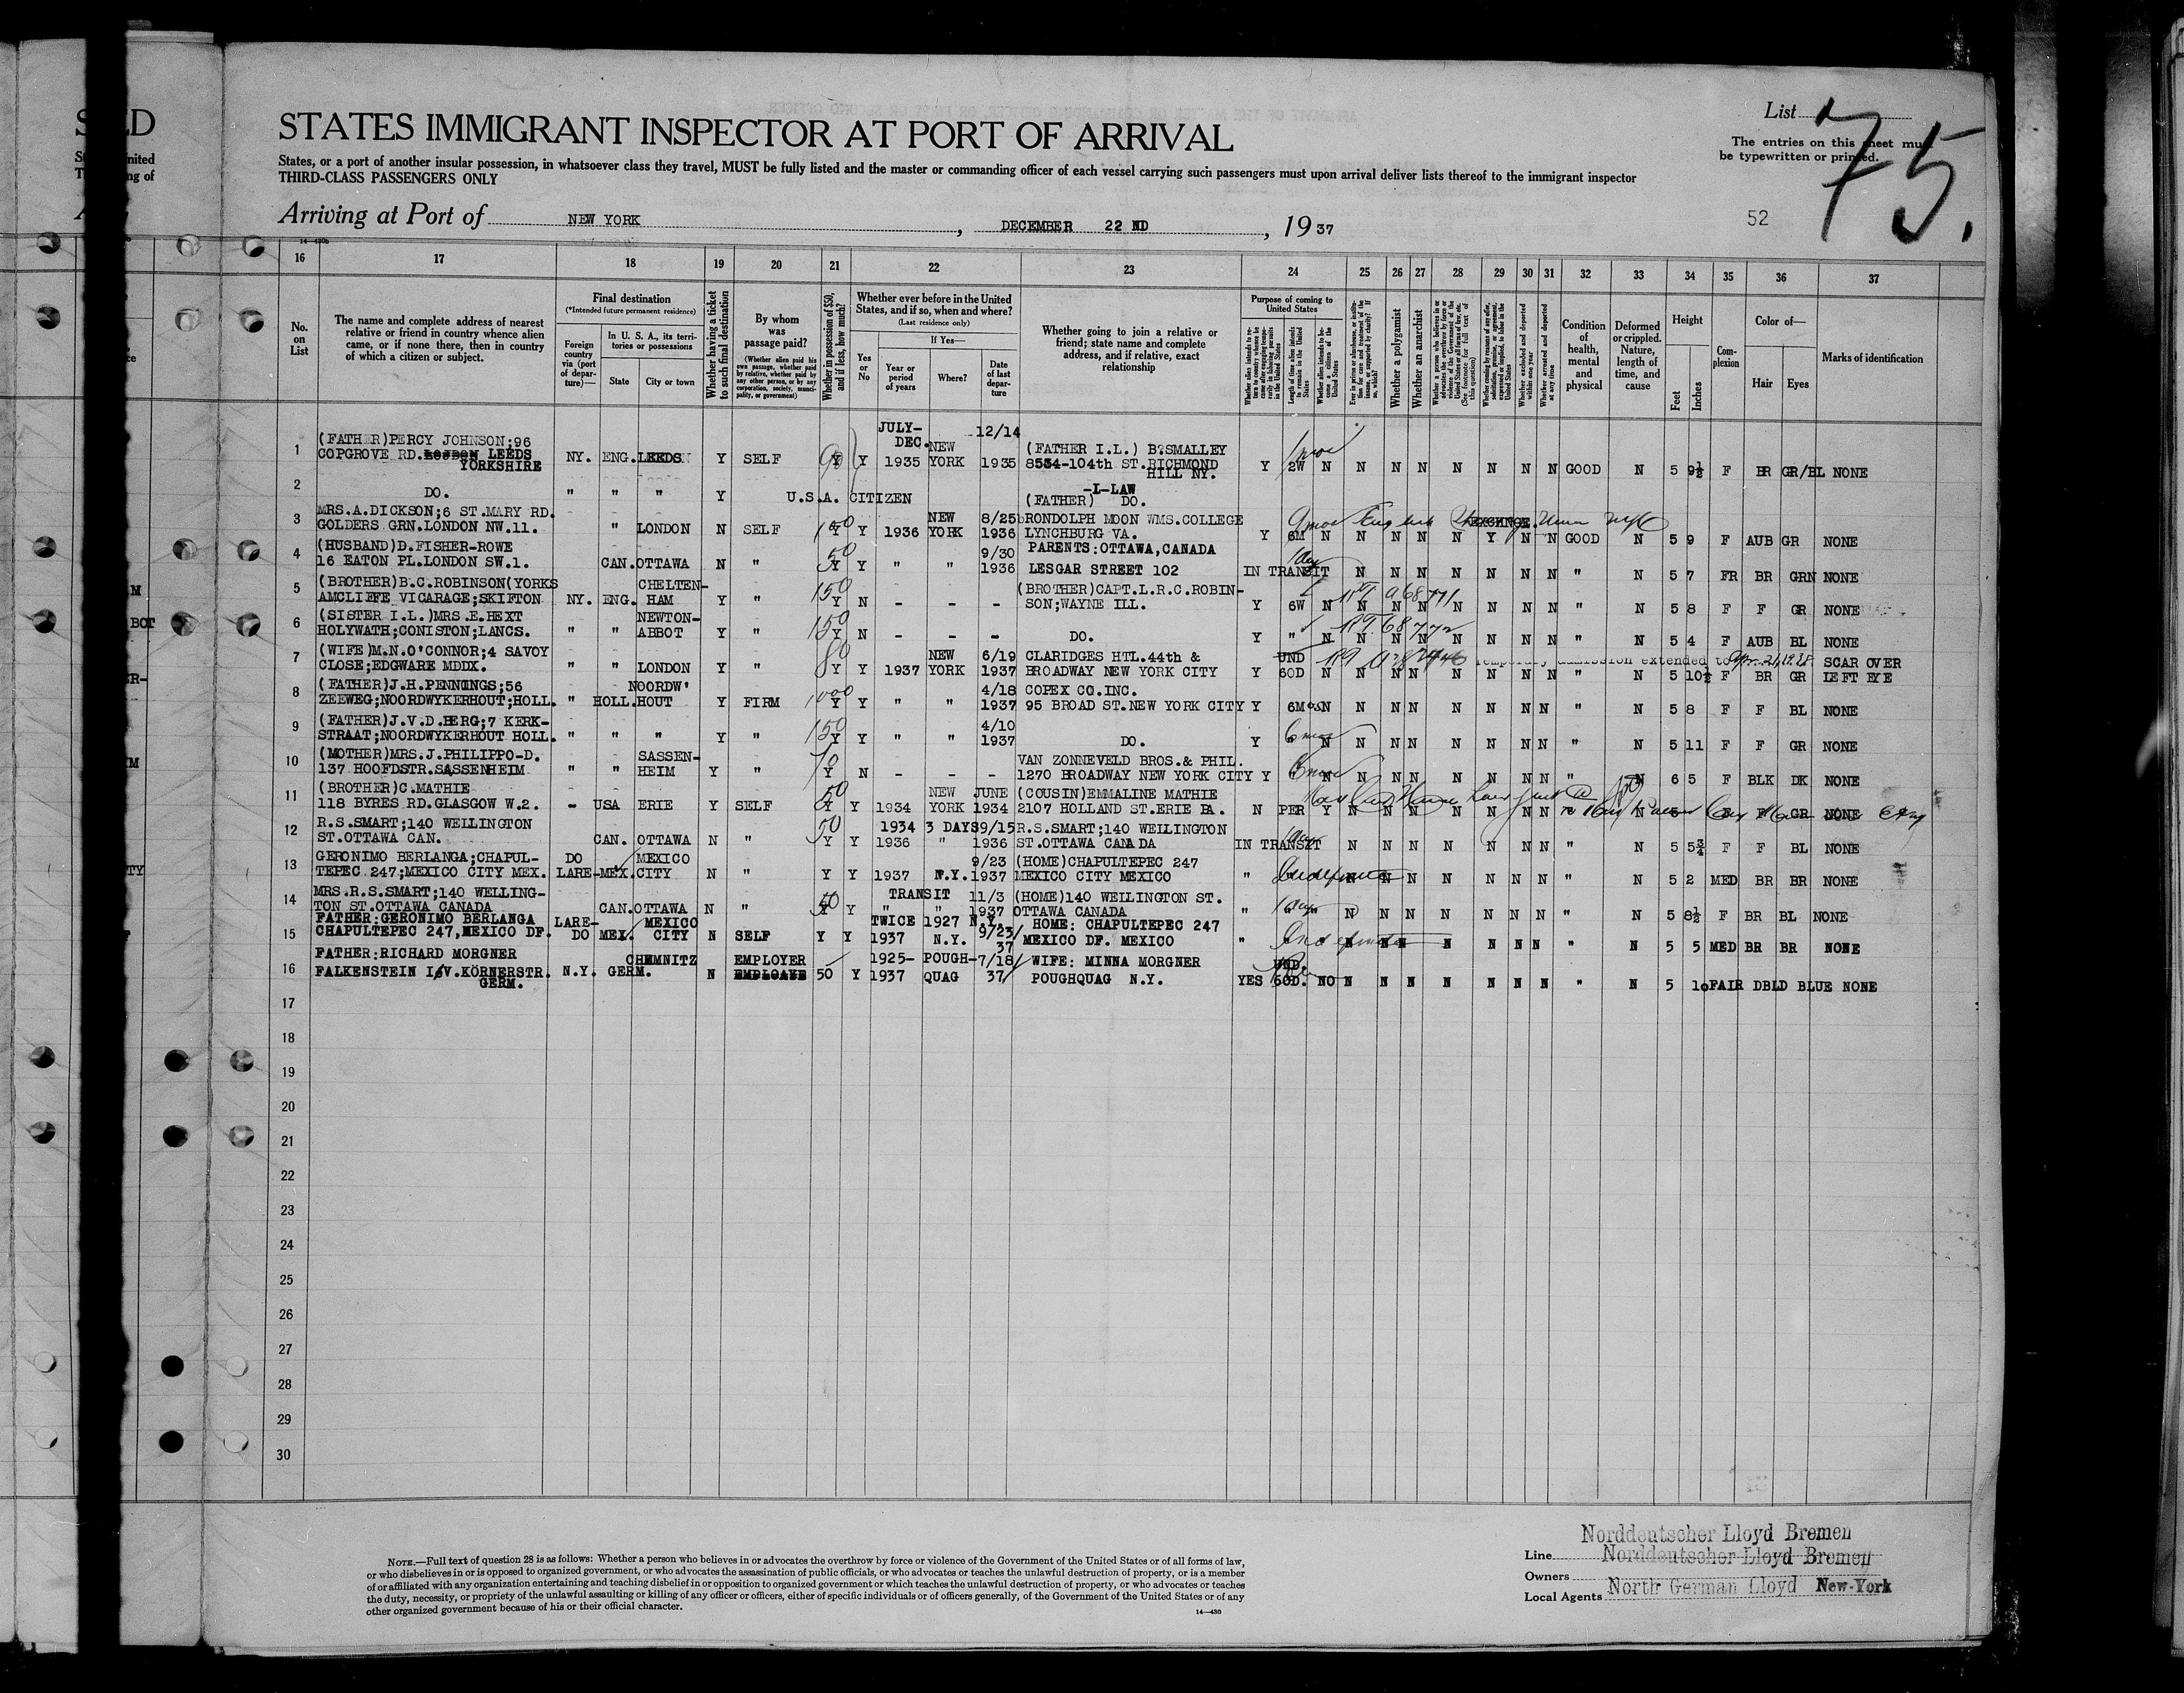 STATES IMMIGRANT INSPECTOR AT PORT OF ARRIVAL
States, or a port of another insular possession, in whatsoever class they travel, MUST be fully listed and the master or commanding officer of each vessel carrying such passengers must upon arrival deliver lists thereof to the immigrant inspector
THIRD-CLASS PASSENGERS ONLY
List
75.
The entries on this sheet must
be typewritten or printed.
52
Arriving at Port of NEW YORK, DECEMBER 22 ND, 19 37
16 17 18 19 20 21 22 23 24 25 26 27 28 29 30 31 32 33 34 35 36 37
No. on List
The name and complete address of nearest relative or friend in country whence alien came, or if none there, then in country of which a citizen or subject.
Final destination
(*Intended future permanent residence)
Foreign country via (port of departure)—
In U. S. A., its territories or possessions
State
City or town
Whether having a ticket to such final destination
By whom was passage paid?
(Whether alien paid his own passage, whether paid by relative, whether paid by any other person, or by any corporation, society, municipality, or government)
Whether in possession of $50, and if less, how much?
Whether ever before in the United States, and if so, when and where?
(Last residence only)
Yes or No
If Yes—
Year or period of years
Where?
Date of last departure
Whether going to join a relative or friend; state name and complete address, and if relative, exact relationship
Purpose of coming to United States
Whether a polygamist
Whether an anarchist
Condition of health, mental and physical
Deformed or crippled. Nature, length of time, and cause
Height
Feet
Inches
Complexion
Color of—
Hair
Eyes
Marks of identification
1 (FATHER)PERCY JOHNSON;96 JULY-DEC. 12/14 (FATHER I.L.) B.SMALLEY
COPGROVE RD. LEEDS YORKSHIRE NY. ENG. LEEDS Y SELF Y Y 1935 NEW YORK 1935 8534-104th ST.RICHMOND HILL NY. Y 2W N N N N N N N N GOOD N 5 9½ F BR GR/BL NONE
2 DO. " " " Y U.S.A. CITIZEN (FATHER) -I-LAW DO.
3 MRS.A.DICKSON;6 ST.MARY RD. NEW 8/25 RONDOLPH MOON WMS.COLLEGE
GOLDERS GRN.LONDON NW.11. " LONDON N SELF Y Y 1936 YORK 1936 LYNCHBURG VA. Y 6M N N N N N Y N N GOOD N 5 9 F AUB GR NONE
4 (HUSBAND)D.FISHER-ROWE 9/30 PARENTS:OTTAWA,CANADA
16 EATON PL.LONDON SW.1. CAN. OTTAWA N " 50 Y Y " " 1936 LESGAR STREET 102 IN TRANSIT N N N N N N N " N 5 7 FR BR GRN NONE
5 (BROTHER)B.C.ROBINSON(YORKS CHELTEN- 150 (BROTHER)CAPT.L.R.C.ROBIN-
AMCLIFFE VICARAGE;SKIFTON NY. ENG. HAM Y " Y N - - - SON;WAYNE ILL. Y 6W N N N N N N N N " N 5 8 F F GR NONE
6 (SISTER I.L.)MRS.E.HEXT NEWTON- 150
HOLYWATH;CONISTON;LANCS. " " ABBOT Y " Y N - - - DO. Y " N N N N N N N N " N 5 4 F AUB BL NONE
7 (WIFE)M.N.O'CONNOR;4 SAVOY 80 NEW 6/19 CLARIDGES HTL.44th & UND Temporary admission extended to SCAR OVER
CLOSE;EDGWARE MDDX. " " LONDON Y " Y Y 1937 YORK 1937 BROADWAY NEW YORK CITY Y 60D N N N N N N N N " N 5 10½ F BR GR LEFT EYE
8 (FATHER)J.H.PENNINGS;56 NOORDW' 4/18 COPEX CO.INC.
ZEEWEG;NOORDWYKERHOUT;HOLL. " HOLL. HOUT Y FIRM 1000 Y Y " " 1937 95 BROAD ST.NEW YORK CITY Y 6Mos N N N N N N N N " N 5 8 F F BL NONE
9 (FATHER)J.V.D.BERG;7 KERK- 150 4/10
STRAAT;NOORDWYKERHOUT HOLL. " " " Y " Y Y " " 1937 DO. Y " N N N N N N N N " N 5 11 F F GR NONE
10 (MOTHER)MRS.J.PHILIPPO-D. SASSEN- 70 VAN ZONNEVELD BROS.& PHIL.
137 HOOFDSTR.SASSENHEIM " " HEIM Y " Y N - - - 1270 BROADWAY NEW YORK CITY Y N N N N N N N N " N 6 5 F BLK DK NONE
11 (BROTHER)C.MATHIE 50 NEW JUNE (COUSIN)EMMALINE MATHIE
118 BYRES RD.GLASGOW W.2. - USA ERIE Y SELF Y Y 1934 YORK 1934 2107 HOLLAND ST.ERIE PA. N PER Y N N N N N N N GR NONE
12 R.S.SMART;140 WELLINGTON 50 1934 3 DAYS 9/15 R.S.SMART;140 WELLINGTON
ST.OTTAWA CAN. CAN. OTTAWA N " Y Y 1936 " 1936 ST.OTTAWA CANADA IN TRANSIT N N N N N N N " N 5 5¾ F F BL NONE
13 GERONIMO BERLANGA;CHAPUL- DO MEXICO 9/23 (HOME)CHAPULTEPEC 247
TEPEC 247;MEXICO CITY MEX. LARE- MEX. CITY N " Y Y 1937 N.Y. 1937 MEXICO CITY MEXICO " N N N N N N N " N 5 2 MED BR BR NONE
14 MRS.R.S.SMART;140 WELLING- 50 TRANSIT 11/3 (HOME)140 WELLINGTON ST.
TON ST.OTTAWA CANADA CAN. OTTAWA N " Y Y " " 1937 OTTAWA CANADA " N N N N N N N " N 5 8½ F BR BL NONE
15 FATHER:GERONIMO BERLANGA LARE- MEXICO TWICE 1927 N.Y. HOME: CHAPULTEPEC 247
CHAPULTEPEC 247,MEXICO DF. DO MEX. CITY N SELF Y Y 1937 N.Y. 9/23/37 MEXICO DF. MEXICO " N N N N N N N " N 5 5 MED BR BR NONE
16 FATHER:RICHARD MORGNER CHEMNITZ EMPLOYER 1925- POUGH- 7/18/ WIFE: MINNA MORGNER UND.
FALKENSTEIN I/V.KÖRNERSTR. GERM. N.Y. GERM. N 50 Y 1937 QUAG 37 POUGHQUAG N.Y. YES 60D. NO N N N N N N N " N 5 10 FAIR DBLD BLUE NONE
17
18
19
20
21
22
23
24
25
26
27
28
29
30
NOTE.—Full text of question 28 is as follows: Whether a person who believes in or advocates the overthrow by force or violence of the Government of the United States or of all forms of law,
or who disbelieves in or is opposed to organized government, or who advocates the assassination of public officials, or who advocates or teaches the unlawful destruction of property, or is a member
of or affiliated with any organization entertaining and teaching disbelief in or opposition to organized government or which teaches the unlawful destruction of property, or who advocates or teaches
the duty, necessity, or propriety of the unlawful assaulting or killing of any officer or officers, either of specific individuals or of officers generally, of the Government of the United States or of any
other organized government because of his or their official character.
14—430
Norddeutscher Lloyd Bremen
Line Norddeutscher Lloyd Bremen
Owners
Local Agents North German Lloyd New-York